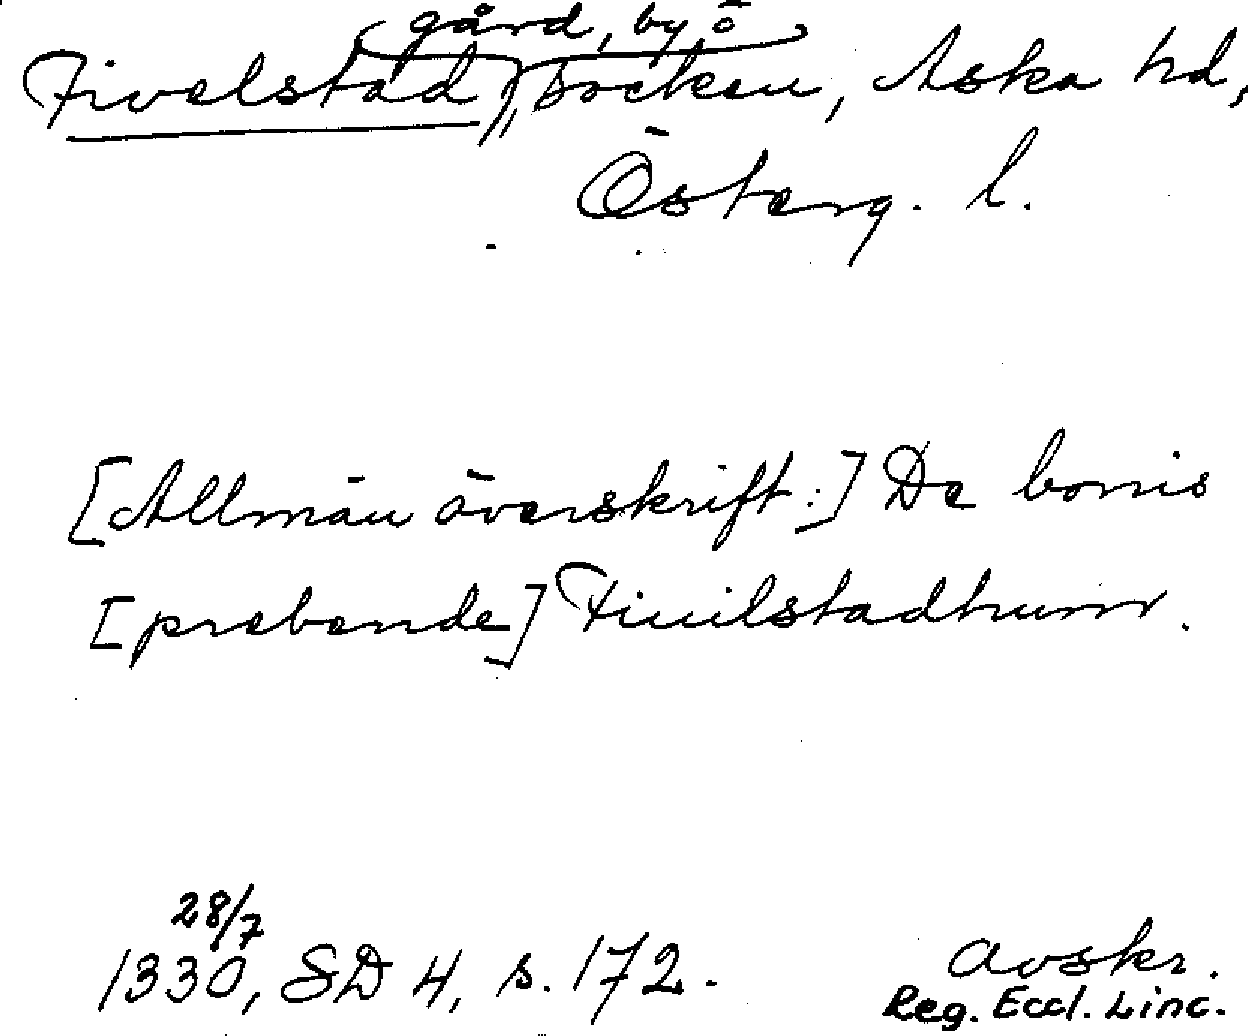 gård, by, ö
Fivelstad, socken, Aska hd,
Österg. l.
[Allmän överskrift:] De bonis
[prebende] Fiuilstadhum.
28/7
1330, SD 4, s. 172.
avskr.
Reg. Eccl. Linc.